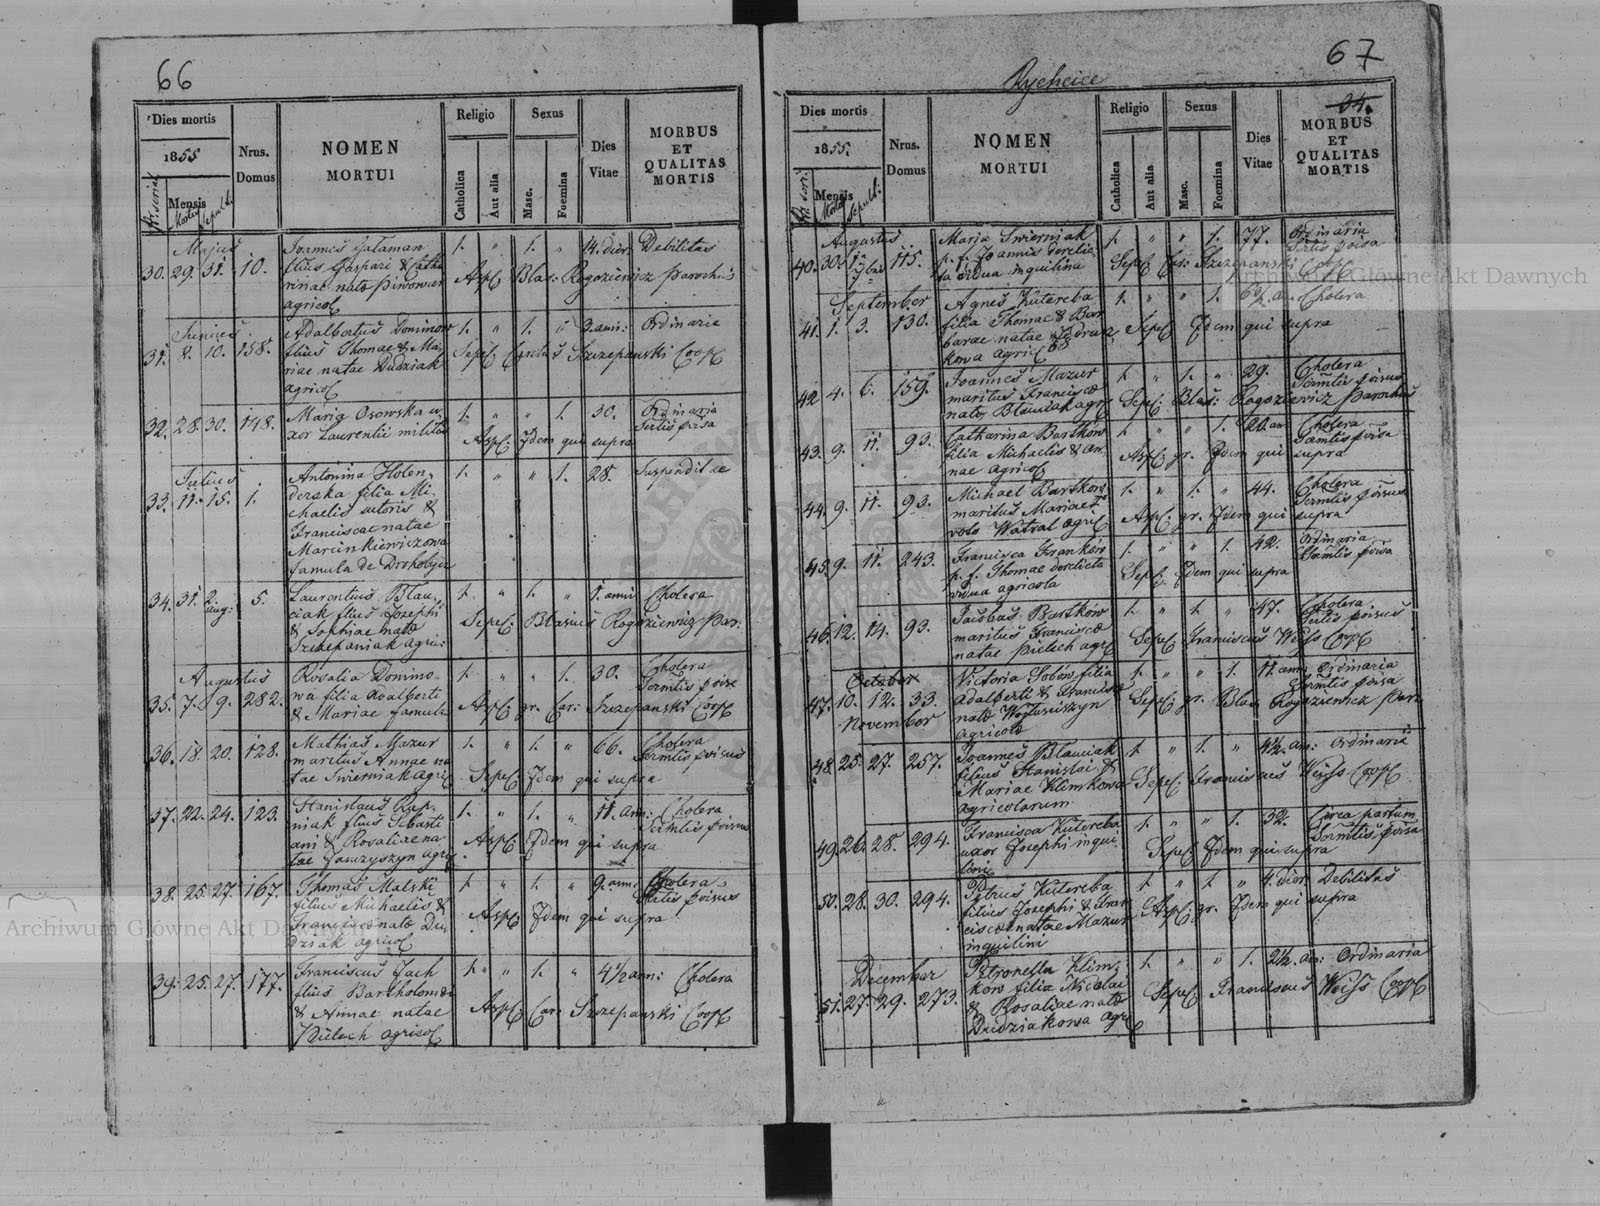 66
Dies mortis
1855
Nr. serial
Mensis
Mortis
Sepult.
Nrus. Domus
NOMEN
MORTUI
Religio
Catholica
Aut alia
Sexus
Masc.
Foemina
Dies
Vitae
MORBUS
ET
QUALITAS
MORTIS
Majus
30. 29. 31. 10. Joannes Galaman 1. " 1. " 14. dier. Debilitas
filius Gaspari & Catha
rinae nata Piwowar Aspl. Blas: Rogoziewicz Parochus
agricol
Junius
31. 8. 10. 158. Adalbertus Dominow 1. " 1. " 3. anni: Ordinaria
filius Thomae & Ma
riae natae Dudziak Sepel. Carolus Szczepanski Coop
agricol
32. 28. 30. 148. Maria Osowska u 1. " " 1. 30. Ordinaria
xor Laurentii militis Aspl: Idem qui supra
Julius
33. 11. 15. 1. Antonina Holen, 1. " " 1. 28. Suspendit se
derska filia Mi
chaelis sutoris &
Franciscae natae
Marcinkiewiczowa
famula de Drohobycz
34. 31. 2. aug: 5. Laurentius Blau, 1. " 1. " 1. anni Cholera
ciak filius Josephi
& Sophiae nata Sepel: Blasius Rogoziewicz Par:
Szczepaniak agric:
Augustus
35. 7. 9. 282. Rosalia Domino, 1. " " 1. 30. Cholera
wa filia Adalberti
& Mariae famula Aspl: gr. Car: Szczepanski Coop
36. 18. 20. 128. Mathias Mazur 1. " 1. " 66. Cholera
maritus Annae na
tae Swierniak agric Sepel: Idem qui supra
37. 22. 24. 123. Stanislaus Rup, 1. " 1. " 11. ann: Cholera
niak filius Sebasti
ani & Rosaliae na Aspl: Idem qui supra
tae Jawczyszyn agric
38. 25. 27. 167. Thomas Malski 1. " 1. " 9. anni Cholera
filius Michaelis &
Franciscae nata Du Aspl: Idem qui supra
dziak agricol
39. 25. 27. 177. Franciscus Jach 1. " 1. " 4 1/2 ann: Cholera
filius Bartholomei
& Annae natae Aspl: Car: Szczepanski Coop
Pielech agricol
67
Rychcice
34.
Dies mortis
1855.
Nr. seri.
Mensis
Mortis
Sepult.
Nrus. Domus
NOMEN
MORTUI
Religio
Catholica
Aut alia
Sexus
Masc.
Foemina
Dies
Vitae
MORBUS
ET
QUALITAS
MORTIS
Augustus
40. 30. 1. 7bris 115. Maria Swierniak 1. " " 1. 77. Ordinaria
p. f. Joannis derelic
ta vidua inquilina Sepel Car: Szczepanski Coop
September
41. 1. 3. 130. Agnes Kutereba 1. " " 1. 6 1/2 an Cholera
filia Thomae & Bar
barae natae Sepel Idem qui supra
kowa agricol
42 4. 6. 159. Joannes Mazur 1. " 1. " 29. Cholera
maritus Franciscae
nata Blauciak agr Sepel: Blas: Rogoziewicz Parochus
43. 9. 11. 93. Catharina Bartków 1. " " 1. 20. an Cholera
filia Michaelis & An
nae agricol Aspl: gr. Idem qui supra
44. 9. 11. 93. Michael Bartków 1. " 1. " 44. Cholera
maritus Mariae
voto Watral agric Aspl: gr. Idem qui supra
45. 9. 11. 243. Francisca Franków 1. " " 1. 42. Ordinaria
p. f. Thomae derelicta
vidua agricola Sepel: Idem qui supra
46. 12. 14. 93. Jacobus Bartków 1. " 1. " 47. Cholera
maritus Franciscae
natae Pielech agric Sepel: Franciscus Weiss Coop
October
47. 10. 12. 33. Victoria Sobów filia 1. " " 1. 11. ann: Ordinaria
Adalberti & Franciscae
nata Wojtasiszyn Sepel: gr. Blas Rogoziewicz Par:
agricola
November
48. 25. 27. 257. Joannes Blauciak 1. " 1. " 4 1/2. an: Ordinaria
filius Stanislai &
Mariae Klimkowa Sepel: Franciscus Weiss Coop
agricolarum
49. 26. 28. 294. Francisca Kutereba 1. " " 1. 32. Circa partum
uxor Josephi inqui
lini Sepel Idem qui supra
50. 28. 30. 294. Petrus Kutereba 1. " 1. " 4. dier: Debilitas
filius Josephi & Fran
ciscae natae Mazur Aspl: gr. Idem qui supra
inquilini
December
51. 27. 29. 273. Petronella Klim, 1. " " 1. 2 1/2. an: Ordinaria
ków filia Nicolai
& Rosaliae nata Sepel: Franciscus Weiss Coop
Dudziakowa agric
Archiwum Główne Akt Dawnych
Archiwum Główne Akt Dawnych